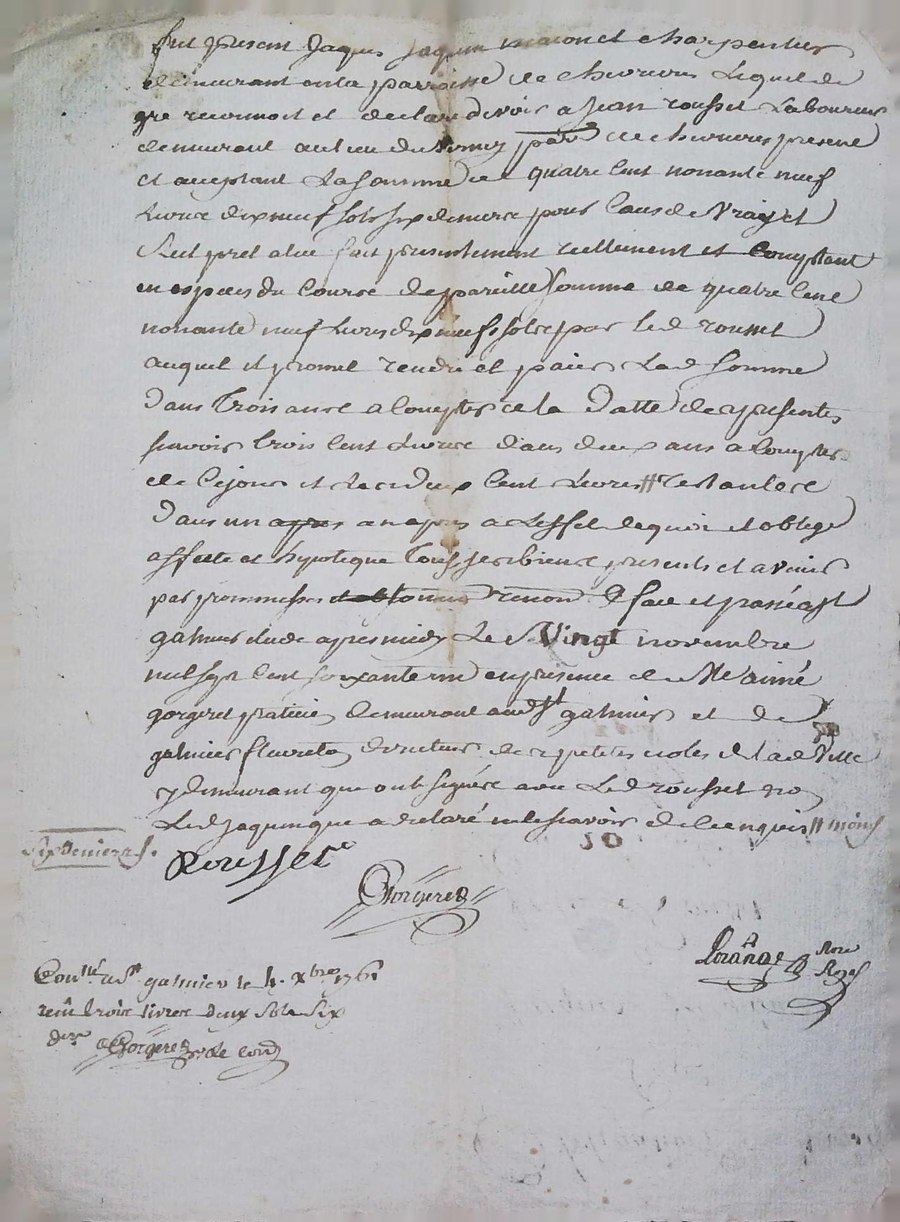 fut present Jaques Jaquin macon et charpentier
demeurant en la parroisse de chevrieres Lequel de
gre reconnoit et declare devoir a Jean rousset Laboureur
demeurant au lieu du parr de chevrieres present
et aceptant La somme de quatre cent nonante neuf
Livres dix neuf sols six deniers pour cause de vray et
Reel pret a luy fait presentement reellement et comptant
en especes du Cours de pareille somme de quatre cent
nonante neuf Livres dix neuf sols par led rousset
auquel il promet rendre et paier Lad somme
dans trois ans a compter de la datte des presentes
scavoir trois cent Livres dans deux ans a compter
de ce jour et les deux cent Livres // restantes
dans un an apres a Leffet dequoi il oblige
affecte et hypoteque tous ses biens presents et avenir
par promesses renon & fait et passé a St
galmier etude apres midy Le vingt novembre
mil sept cent soixante un en presence de Me aimé
gorgeret praticien demeurant aud St galmier et de
galmier fleureton directeur des petites ecoles de lad ville
y demeurant que ont signés avec Led rousset non
Led jaquin que a declaré ne le scavoir de ce enquis // moins
six deniers
Rousset
Gorgeret
Nore
Royal
Conllé a St galmier le 4 xbre 1761
reçu trois livres deux sols six
drs Gorgeret